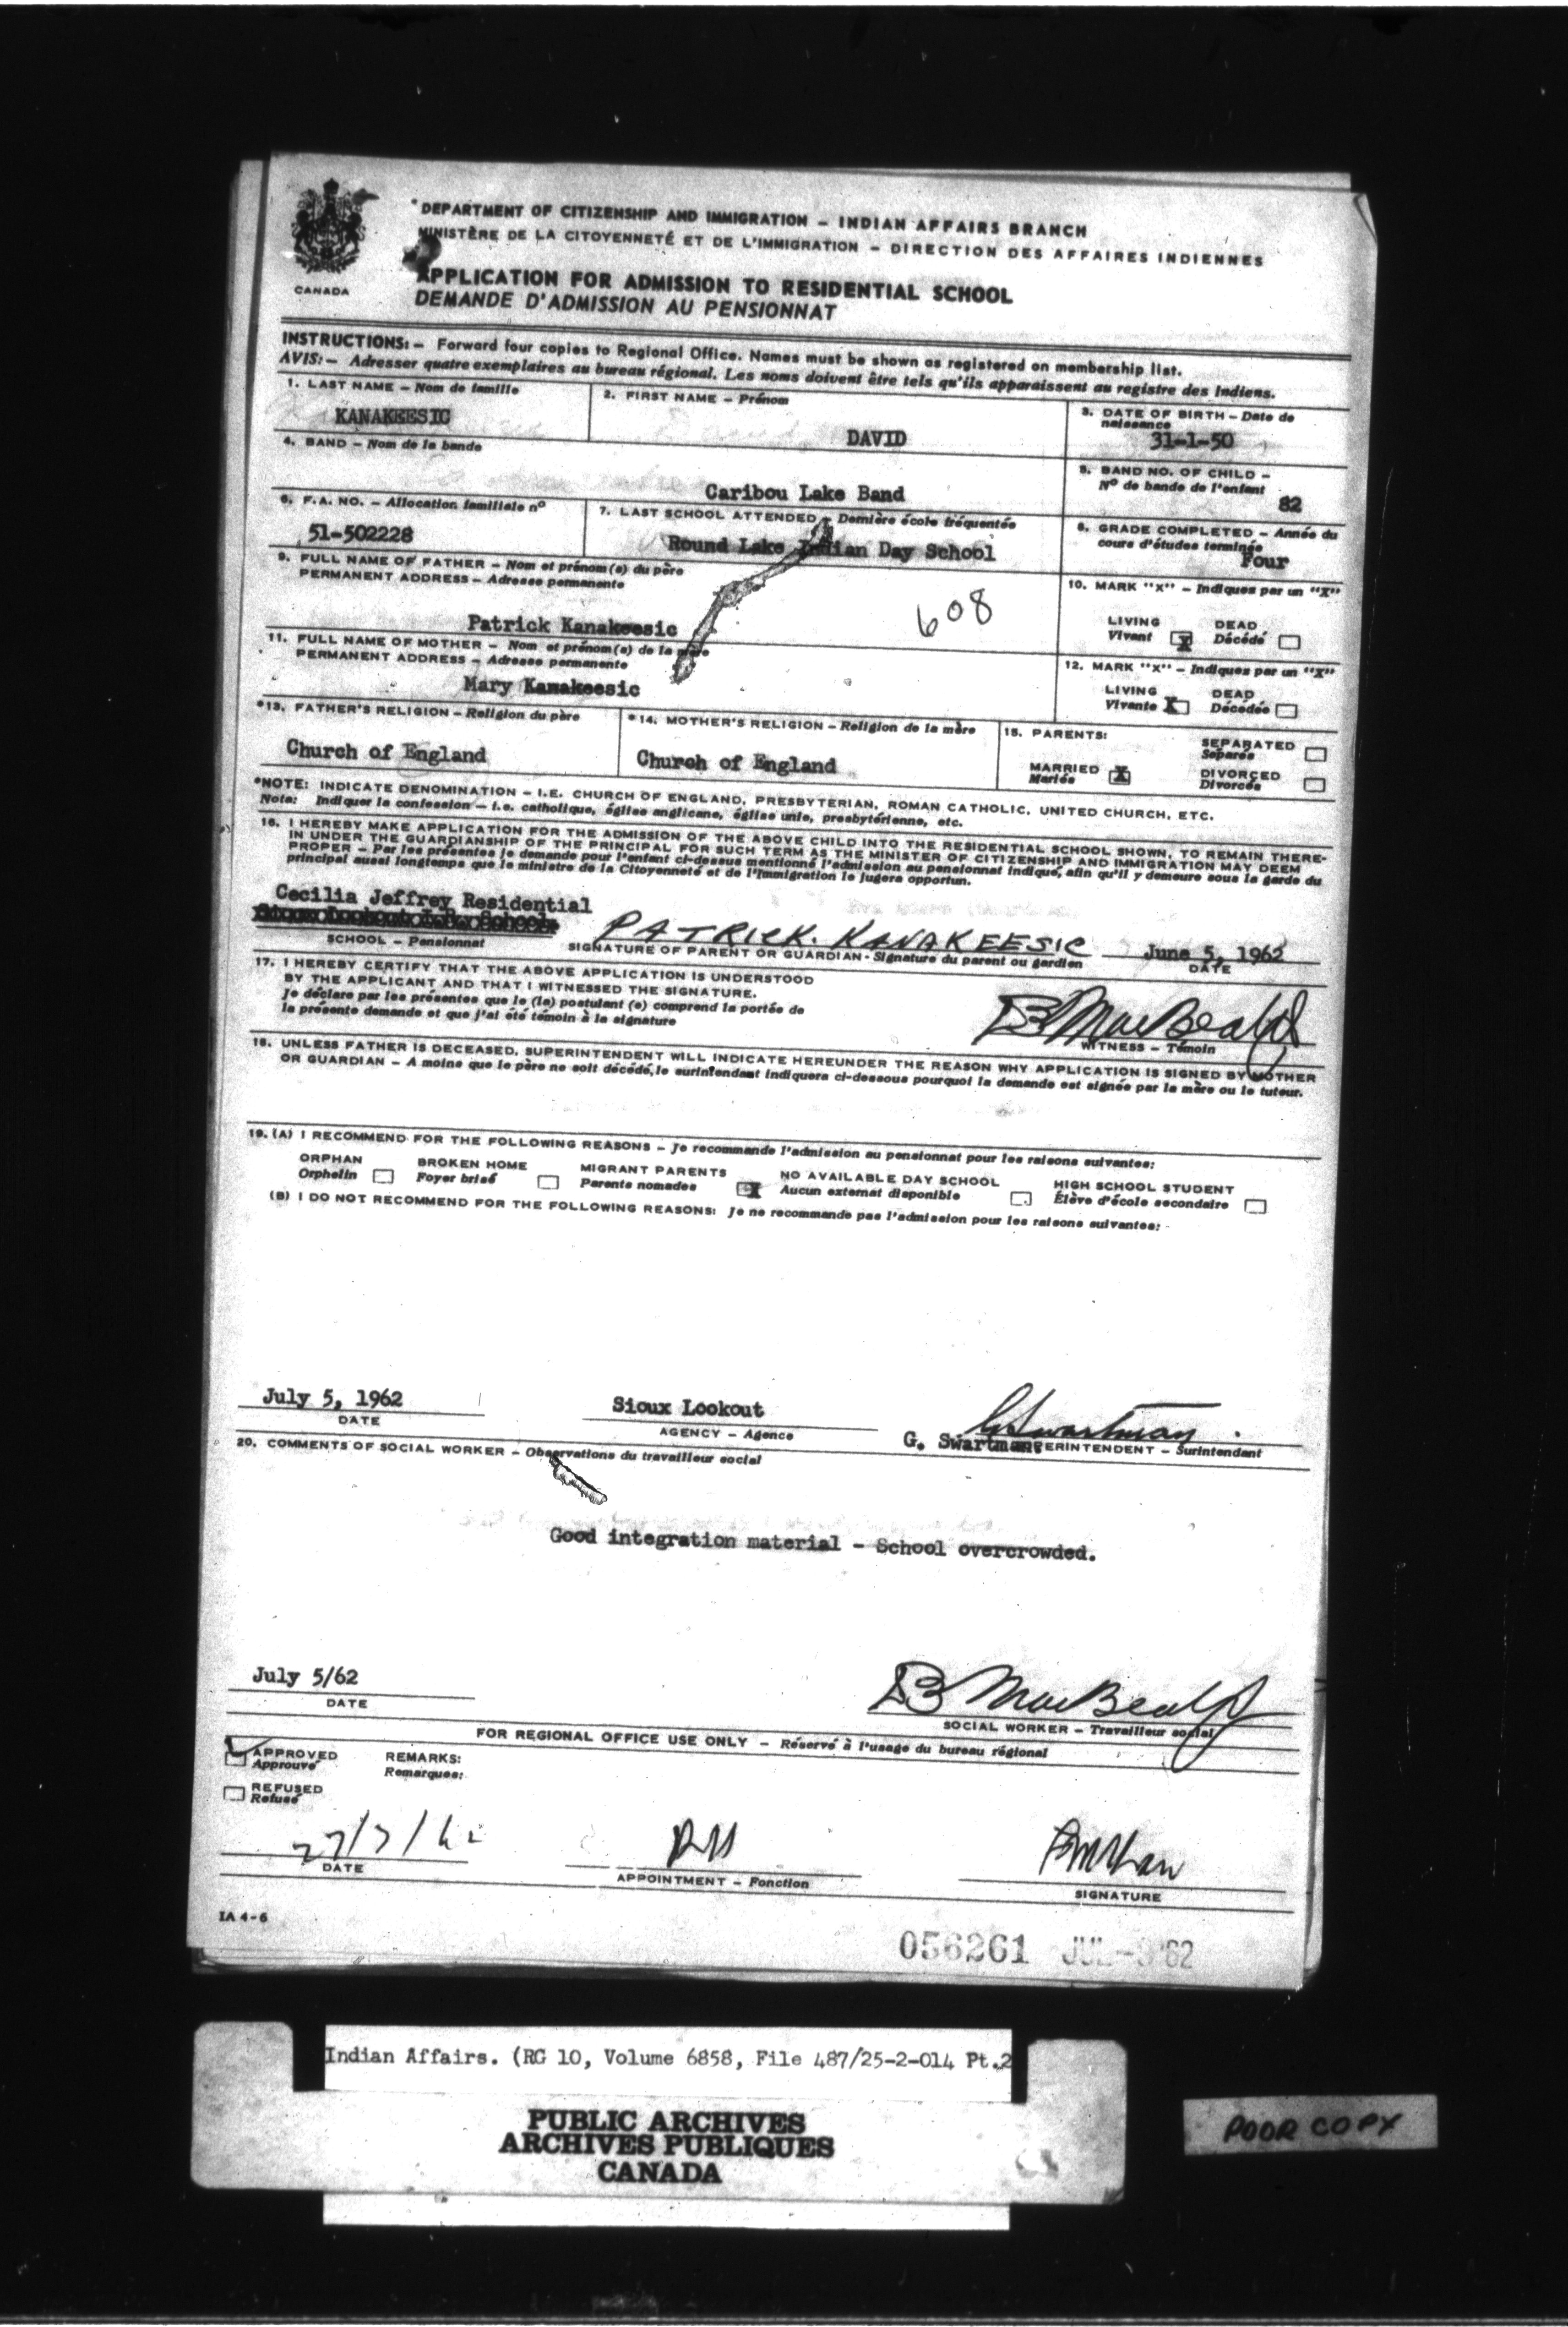 DEPARTMENT OF CITIZENSHIP AND IMMIGRATION – INDIAN AFFAIRS BRANCH
MINISTÈRE DE LA CITOYENNETÉ ET DE L'IMMIGRATION – DIRECTION DES AFFAIRES INDIENNES
CANADA
APPLICATION FOR ADMISSION TO RESIDENTIAL SCHOOL
DEMANDE D'ADMISSION AU PENSIONNAT
INSTRUCTIONS: – Forward four copies to Regional Office. Names must be shown as registered on membership list.
AVIS: – Adresser quatre exemplaires au bureau régional. Les noms doivent être tels qu'ils apparaissent au registre des Indiens.
1. LAST NAME – Nom de famille
KANAKEESIC
2. FIRST NAME – Prénom
DAVID
3. DATE OF BIRTH – Date de naissance
31-1-50
4. BAND – Nom de la bande
Caribou Lake Band
5. BAND NO. OF CHILD –
Nº de bande de l'enfant
82
6. F.A. NO. – Allocation familiale nº
51-502228
7. LAST SCHOOL ATTENDED – Dernière école fréquentée
Round Lake Indian Day School
8. GRADE COMPLETED – Année du
cours d'études terminée
Four
9. FULL NAME OF FATHER – Nom et prénom(s) du père
PERMANENT ADDRESS – Adresse permanente
Patrick Kanakeesic
608
10. MARK "X" – Indiquez par un "X"
LIVING DEAD
Vivant X Décédé
11. FULL NAME OF MOTHER – Nom et prénom(s) de la mère
PERMANENT ADDRESS – Adresse permanente
Mary Kanakeesic
12. MARK "X" – Indiquez par un "X"
LIVING DEAD
Vivante X Décédée
*13. FATHER'S RELIGION – Religion du père
Church of England
*14. MOTHER'S RELIGION – Religion de la mère
Church of England
15. PARENTS:
SEPARATED
Séparés
MARRIED X
Mariés
DIVORCED
Divorcés
*NOTE: INDICATE DENOMINATION – I.E. CHURCH OF ENGLAND, PRESBYTERIAN, ROMAN CATHOLIC, UNITED CHURCH, ETC.
Nota: Indiquer la confession – i.e. catholique, église anglicane, église unie, presbytérienne, etc.
16. I HEREBY MAKE APPLICATION FOR THE ADMISSION OF THE ABOVE CHILD INTO THE RESIDENTIAL SCHOOL SHOWN, TO REMAIN THERE-
IN UNDER THE GUARDIANSHIP OF THE PRINCIPAL FOR SUCH TERM AS THE MINISTER OF CITIZENSHIP AND IMMIGRATION MAY DEEM
PROPER – Par les présentes je demande pour l'enfant ci-dessus mentionné l'admission au pensionnat indiqué, afin qu'il y demeure sous la garde du
principal aussi longtemps que le ministre de la Citoyenneté et de l'Immigration le jugera opportun.
Cecilia Jeffrey Residential
Sioux Lookout I.R. School
SCHOOL – Pensionnat
PATRICK. KANAKEESIC
SIGNATURE OF PARENT OR GUARDIAN - Signature du parent ou gardien
June 5, 1962
DATE
17. I HEREBY CERTIFY THAT THE ABOVE APPLICATION IS UNDERSTOOD
BY THE APPLICANT AND THAT I WITNESSED THE SIGNATURE.
Je déclare par les présentes que le (la) postulant (e) comprend la portée de
la présente demande et que j'ai été témoin à la signature
WITNESS – Témoin
18. UNLESS FATHER IS DECEASED, SUPERINTENDENT WILL INDICATE HEREUNDER THE REASON WHY APPLICATION IS SIGNED BY MOTHER
OR GUARDIAN – A moins que le père ne soit décédé, le surintendant indiquera ci-dessous pourquoi la demande est signée par la mère ou le tuteur.
19. (A) I RECOMMEND FOR THE FOLLOWING REASONS – Je recommande l'admission au pensionnat pour les raisons suivantes:
ORPHAN BROKEN HOME MIGRANT PARENTS NO AVAILABLE DAY SCHOOL HIGH SCHOOL STUDENT
Orphelin Foyer brisé Parents nomades X Aucun externat disponible Élève d'école secondaire
(B) I DO NOT RECOMMEND FOR THE FOLLOWING REASONS: Je ne recommande pas l'admission pour les raisons suivantes:
July 5, 1962
DATE
Sioux Lookout
AGENCY – Agence
G Swartman
G. Swartman SUPERINTENDENT – Surintendant
20. COMMENTS OF SOCIAL WORKER – Observations du travailleur social
Good integration material – School overcrowded.
July 5/62
DATE
SOCIAL WORKER – Travailleur social
FOR REGIONAL OFFICE USE ONLY – Réservé à l'usage du bureau régional
APPROVED
Approuvé
REMARKS:
Remarques:
REFUSED
Refusé
27/7/62
DATE
APPOINTMENT – Fonction
SIGNATURE
IA 4-6
056261 JUL
62
Indian Affairs. (RG 10, Volume 6858, File 487/25-2-014 Pt.2
PUBLIC ARCHIVES
ARCHIVES PUBLIQUES
CANADA
POOR COPY